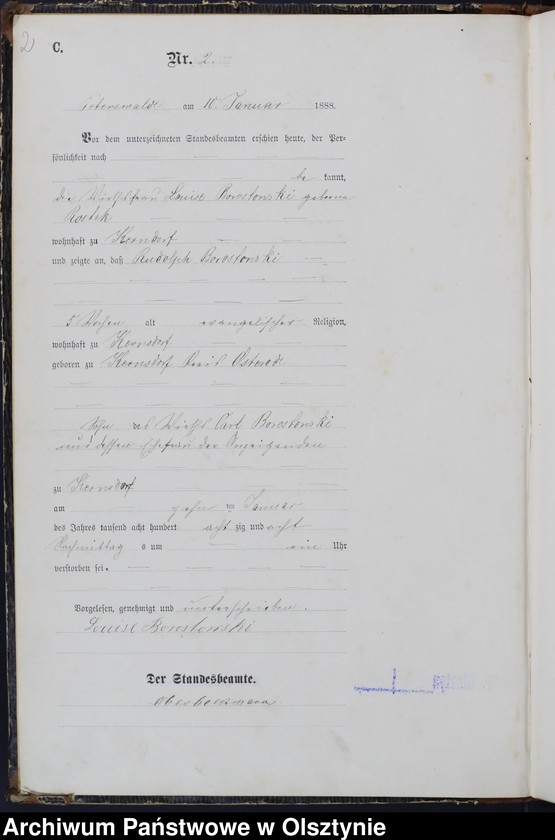 2
C.
Nr. 2.
am 10. Januar 1888.
Vor dem unterzeichneten Standesbeamten erschien heute, der Per-
sönlichkeit nach
be kannt,
die Wirthsfrau Louise Borostowski geborene
Rostek
wohnhaft zu Kernsdorf
und zeigte an, daß Rudolph Borostowski
5 Wochen alt evangelischer Religion,
wohnhaft zu Kernsdorf
geboren zu Kernsdorf Kreis Osterode
Sohn des Wirths Carl Borostowski
und dessen Ehefrau der Anzeigenden
zu Kernsdorf
am zehn ten Januar
des Jahres tausend acht hundert acht zig und acht
Nachmittag s um ein Uhr
verstorben sei.
Vorgelesen, genehmigt und unterschrieben.
Louise Borostowski
Der Standesbeamte.
Archiwum Państwowe w Olsztynie